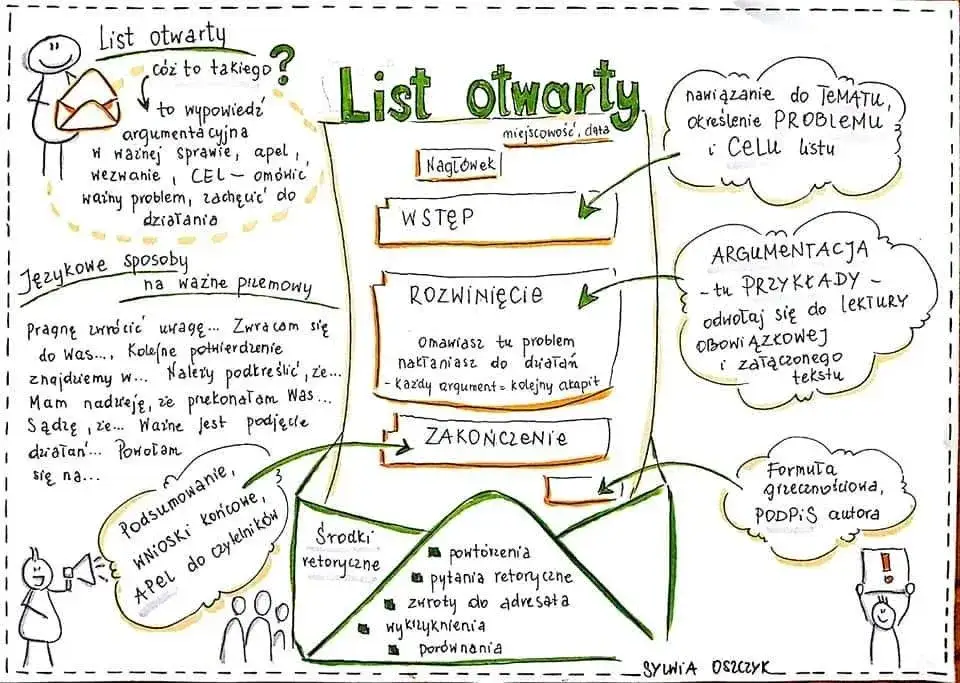 List otwarty
cóż to takiego?
to wypowiedź
argumentacyjna
w ważnej sprawie, apel,
wezwanie, CEL – omówić
ważny problem, zachęcić do
działania
Językowe sposoby
na ważne przemowy
Pragnę zwrócić uwagę... Zwracam się
do Was..., Kolejne potwierdzenie
znajdziemy w... Należy podkreślić, że...
Mam nadzieję, że przekonałam Was...
Sądzę, że... Ważne jest podjęcie
działań... Powołam
się na...
Podsumowanie,
WNIOSKI końcowe,
APEL do czytelników
List otwarty
miejscowość, data
Nagłówek
WSTĘP
ROZWINIĘCIE
Omawiasz tu problem
nakłaniasz do działań
- każdy argument = kolejny akapit
ZAKOŃCZENIE
nawiązanie do TEMATU,
określenie PROBLEMU
i CELU listu
ARGUMENTACJA
- tu PRZYKŁADY -
odwołaj się do LEKTURY
OBOWIĄZKOWEJ
i załączonego
tekstu
Formuła
grzecznościowa,
PODPIS autora
Środki
retoryczne
powtórzenia
pytania retoryczne
zwroty do adresata
wykrzyknienia
porównania
!
SYLWIA OSZCZYK